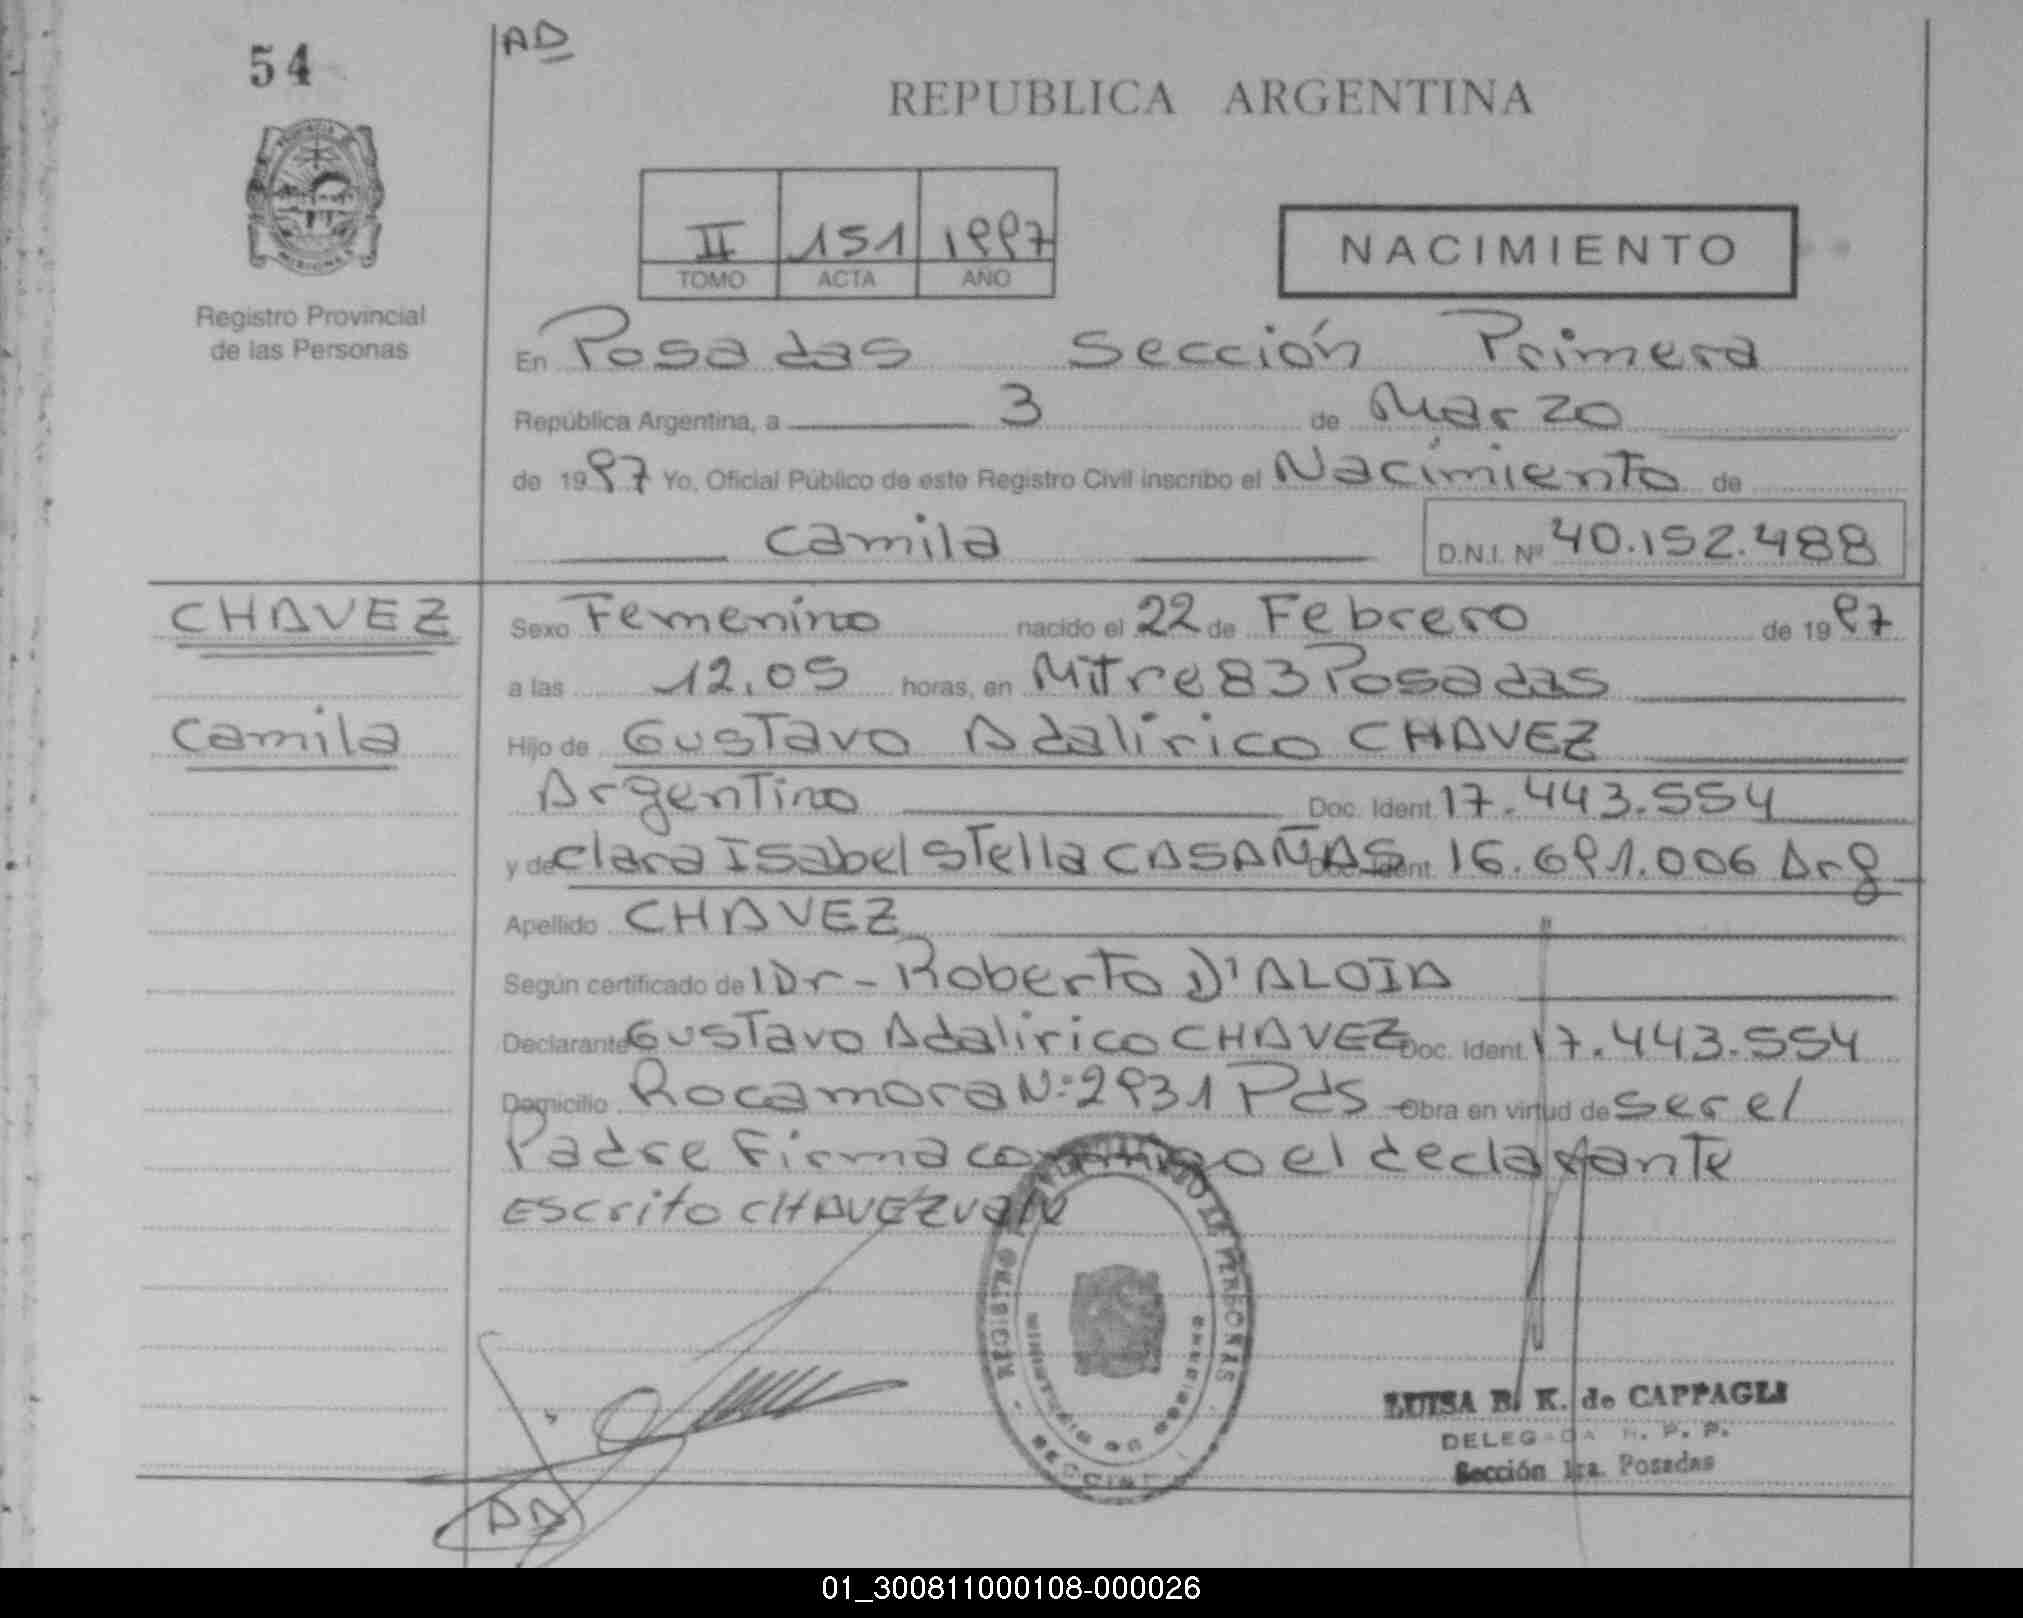 54
AD
REPUBLICA ARGENTINA
II 151 1997
TOMO ACTA AÑO
NACIMIENTO
Registro Provincial
de las Personas
En Posadas Sección Primera
República Argentina, a 3 de Marzo
de 1997 Yo, Oficial Público de este Registro Civil inscribo el Nacimiento de
Camila D.N.I. Nº 40.152.488
CHAVEZ
Camila
Sexo Femenino nacido el 22 de Febrero de 1997
a las 12.05 horas, en Mitre 83 Posadas
Hijo de Gustavo Adalírico CHAVEZ
Argentino Doc. Ident. 17.443.554
y de Clara Isabel Stella CASAÑAS Doc. Ident. 16.691.006 Arg
Apellido CHAVEZ
Según certificado del Dr - Roberto D'ALOIA
Declarante Gustavo Adalírico CHAVEZ Doc. Ident. 17.443.554
Domicilio Rocamora N: 2931 Pds - Obra en virtud de ser el
Padre Firma conmigo el declarante
Escrito CHAVEZ vale
AD
LUISA B. K. de CAPPAGLI
DELEGADA R. P. P.
Sección 1ra. Posadas
01_300811000108-000026